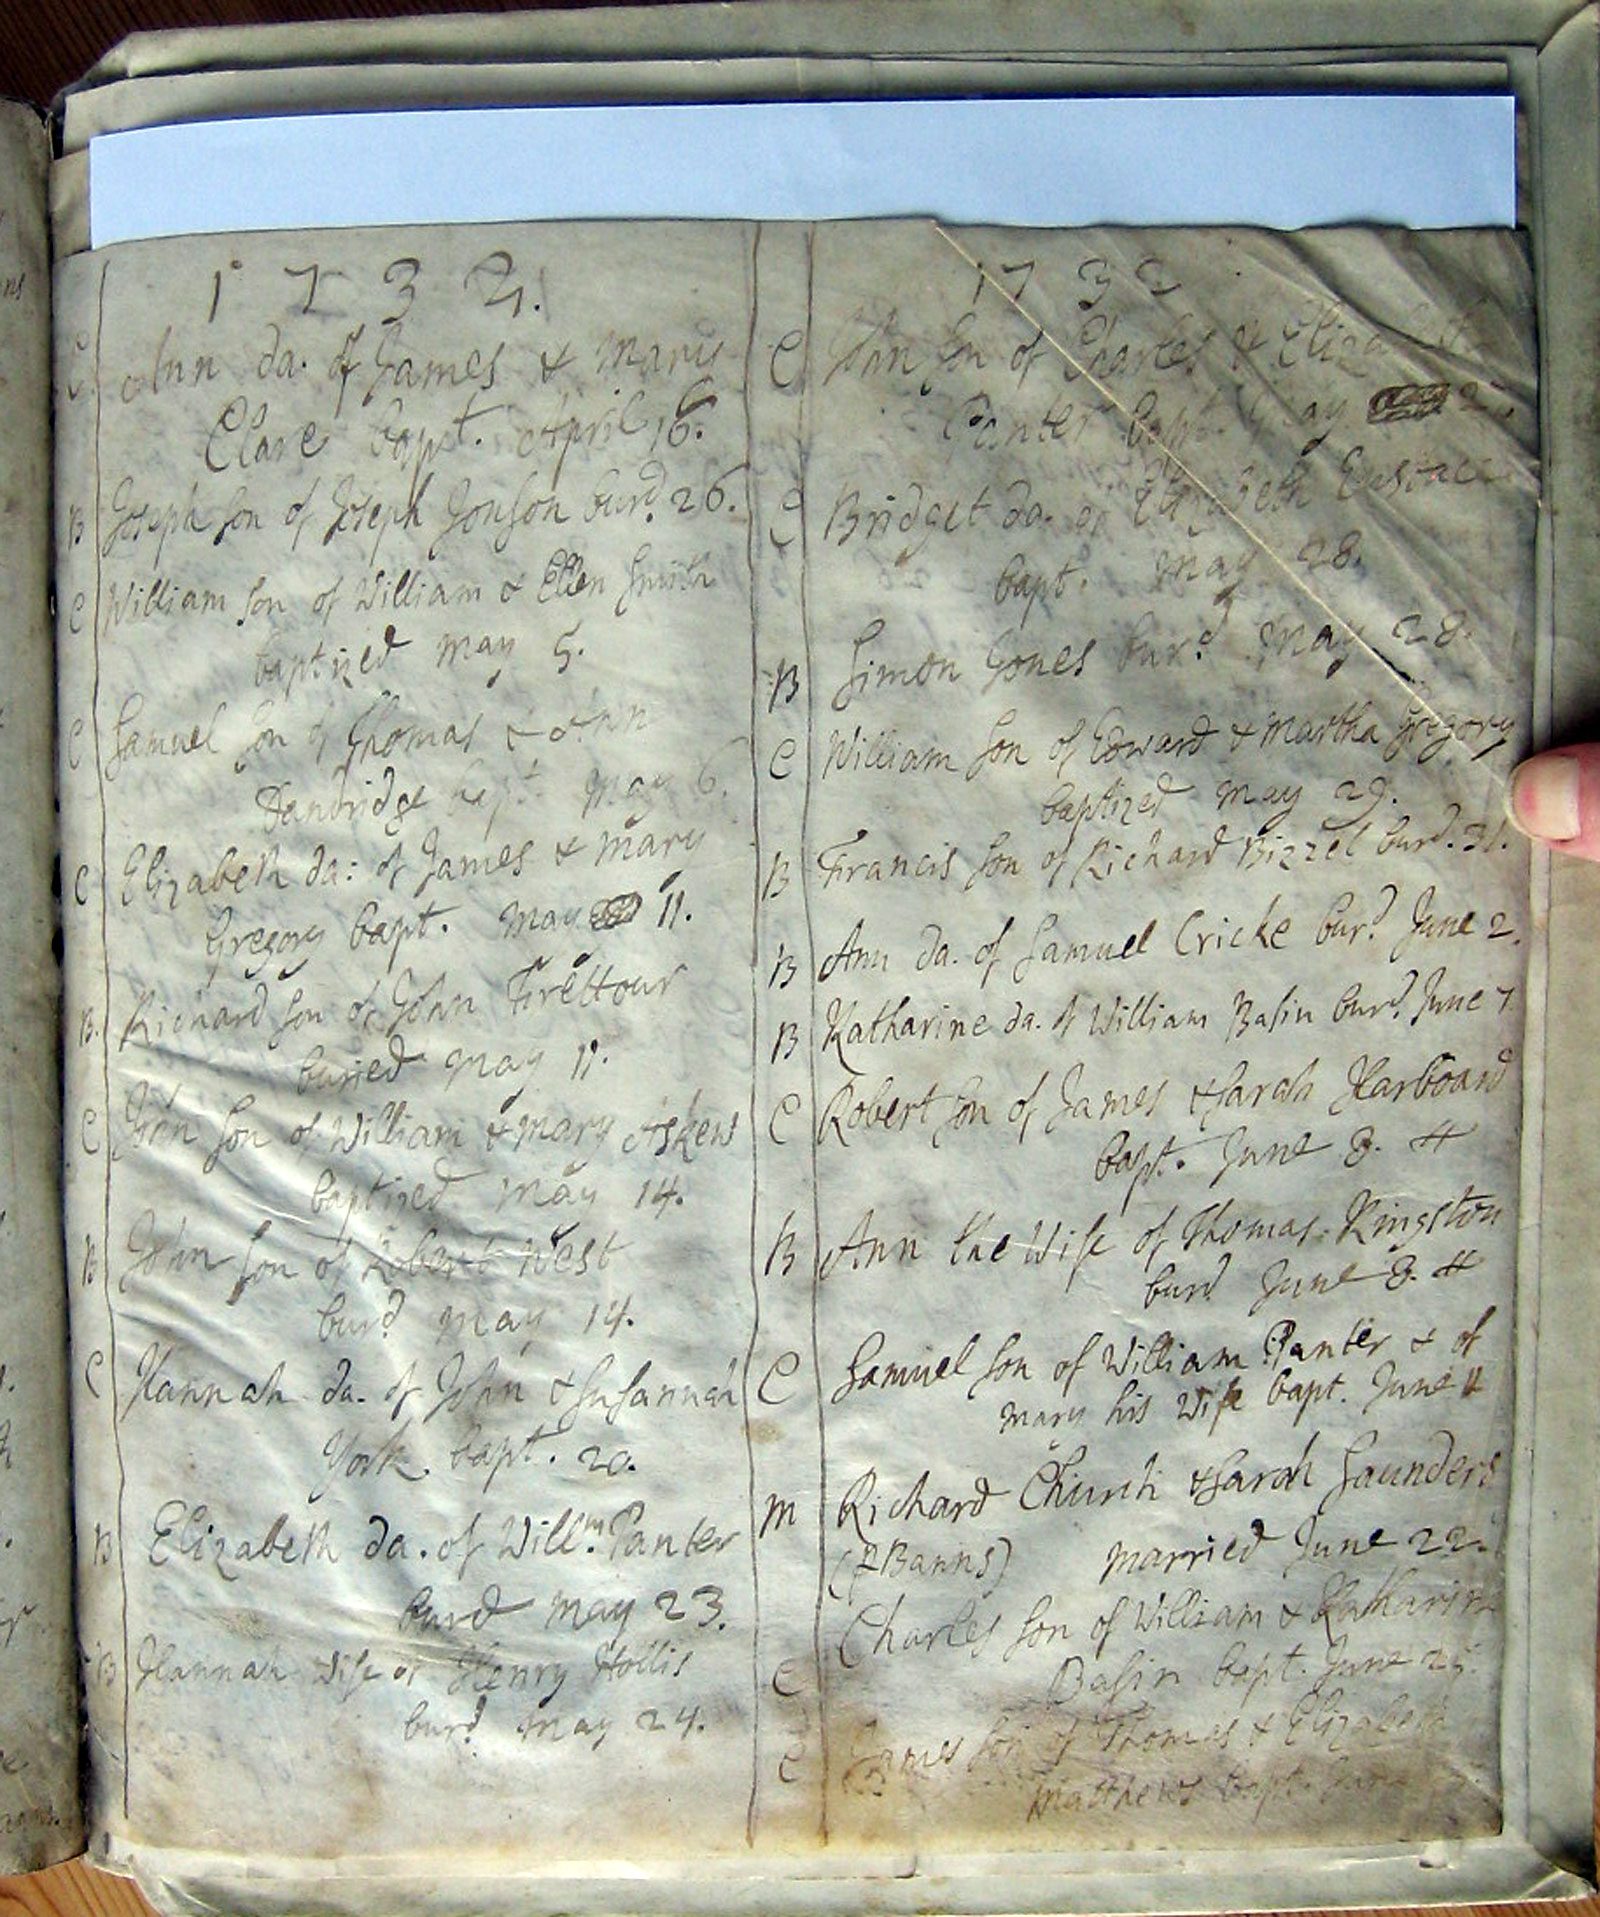 1732.
C Ann da. of James & Mary
Clare bapt. April 16.
B Joseph son of Joseph Jonson burd. 26.
C William son of William & Ellen Smith
baptized May 5.
C Samuel son of Thomas & Ann
Danbridge bapt. May 6.
C Elizabeth da: of James & Mary
Gregory bapt. May 11.
B. Richard son of John Firettour
buried May 11.
C John son of William & Mary Askew
baptized May 14.
B John son of Robert West
burd May 14.
C Hannah da. of John & Susannah
York. bapt. 20.
B Elizabeth da. of Willm. Panter
burd May 23.
B Hannah Wife of Henry Hollis
burd. May 24.
1732
C John son of Charles & Elizabeth
Panter bapt. May
C Bridget da. of Elizabeth Eustace
bapt. May 28.
B Simon Jones burd. May 28.
C William son of Edward & Martha Gregory
baptized May 29.
B Francis son of Richard Bizzel burd. 31.
B Ann da. of Samuel Cricke burd. June 2.
B Katharine da. of William Basin burd. June 7
C Robert son of James & Sarah Harboard
bapt. June 8. #
B Ann the Wife of Thomas Kingston
burd June 8. #
C Samuel son of William Panter & of
Mary his Wife bapt. June 11
M Richard Church & Sarah Saunders
(P Banns) married June 22.
C Charles son of William & Katharine
Basin bapt. June 25.
C James son of Thomas & Elizabeth
Matthews bapt. June